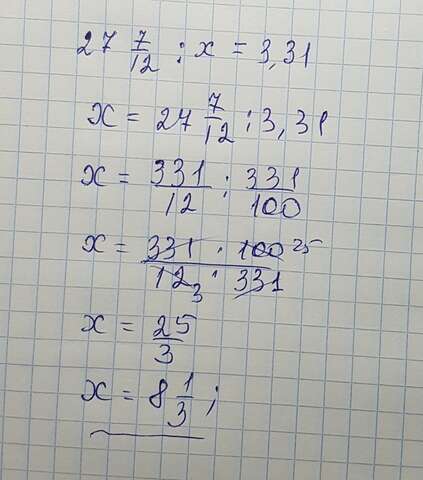 27 7/12 : x = 3,31
x = 27 7/12 : 3,31
x = 331/12 : 331/100
x = 331 · 100 25 / 12 3 · 331
x = 25/3
x = 8 1/3 ;